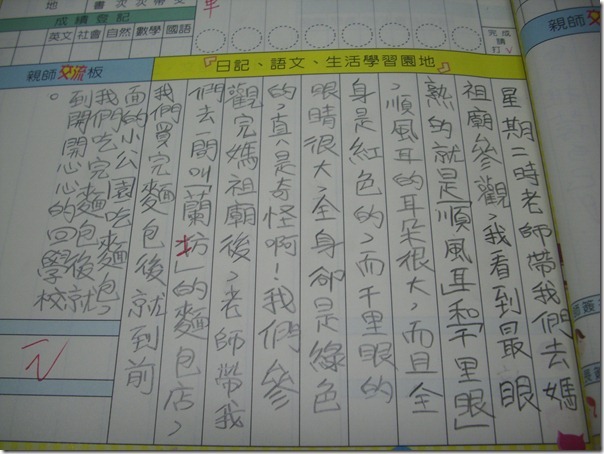 成績登記
英文 社會 自然 數學 國語
完成
請
打✓
親師交流板
『日記、語文、生活學習園地』
星期二時老師帶我們去媽
祖廟參觀，我看到最眼
熟的就是「順風耳」和「千里眼」
，順風耳的耳朵很大，而且全
身是紅色的，而千里眼的
眼睛很大，全身卻是綠色
的，真是奇怪啊！我們參
觀完媽祖廟後，老師帶我
們去一間叫「蘭坊」的麵包店，
我們買完麵包後就到前
面的小公園吃麵包，
我們吃完麵包後就
到開開心心的回學校
。